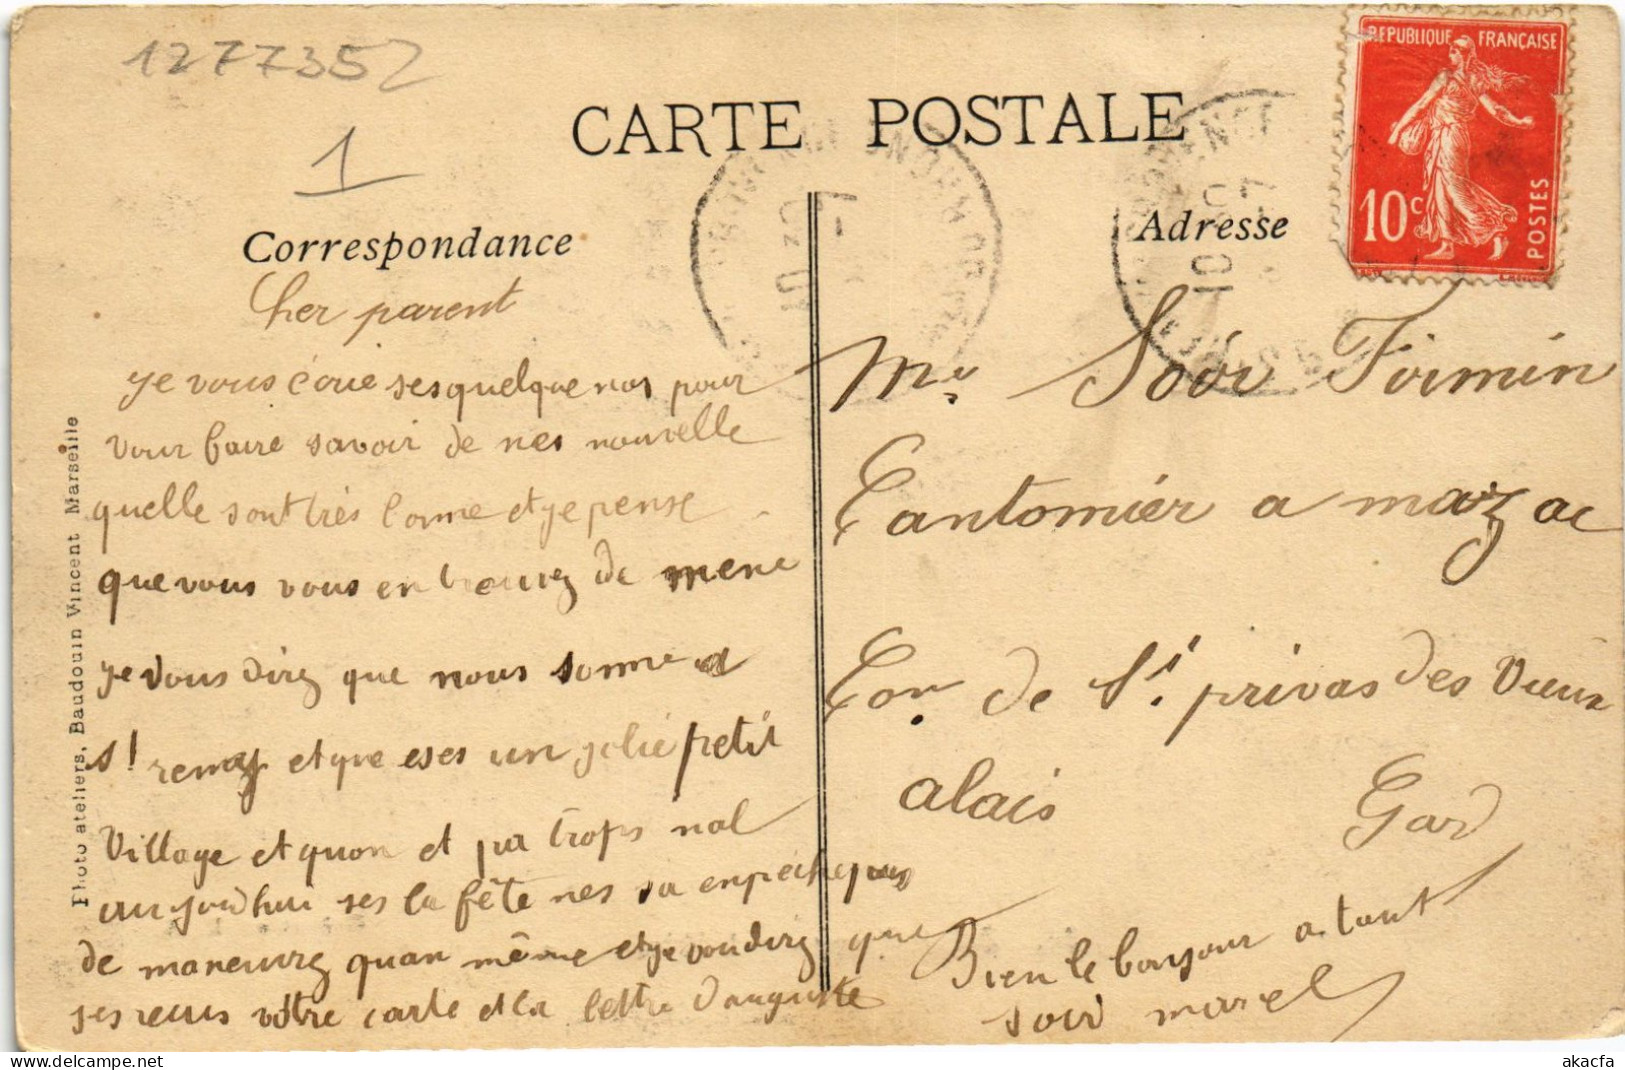 1277352
1
CARTE POSTALE
REPUBLIQUE FRANÇAISE
10c
POSTES
Correspondance
Adresse
Cher parent
je vous écrie ses quelque nos pour
vour faire savoir de nes nouvelle
quelle sont très bonne et je pense
que vous vous en trouvez de mene
je vous direz que nous somme a
St remy et que eses un jolie petit
village et quon et pa trops nal
aujourdhui ses la fête nes sa enpeche pas
de maneuvrez quan même et je vou direz que
jes reçus vôtre carte et la lettre dauguste
Bien le bonjour a tout
soir marcel
Mr Firmin
Cantonnier a mazac
Con de St privas des Vieux
alais
Gard
Photo ateliers, Baudouin Vincent Marseille
akacfa